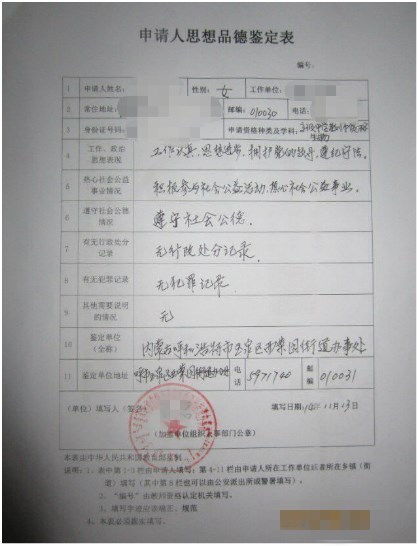 申请人思想品德鉴定表
编号:
1 申请人姓名: 性别: 女 工作单位:
2 常住地址: 邮编: 010030 电话:
3 身份证号码: 申请资格种类及学科:
生物
4 工作、政治思想表现 工作认真,思想进步,拥护党的领导,遵纪守法。
5 热心社会公益事业情况 积极参与社会公益活动,热心社会公益事业。
6 遵守社会公德情况 遵守社会公德
7 有无行政处分记录 无行政处分记录.
8 有无犯罪记录 无犯罪记录.
9 其他需要说明的情况 无
10 鉴定单位(全称) 内蒙古呼和浩特市玉泉区 街道办事处
11 鉴定单位地址 电话 5971740 邮编 010031
(单位) 填写人(签名) 填写日期: 11月13日
(加盖单位组织人事部门公章)
本表由中华人民共和国教育部监制
说明:1、表中第1-3栏由申请人填写;第4-11栏由申请人所在工作单位或者所在乡镇(街
道)填写(其中第8栏也可以由公安派出所或警署填写)。
2、“编号”由教师资格认定机关填写。
3、填写字迹应该端正、规范
4、本表必须据实填写。